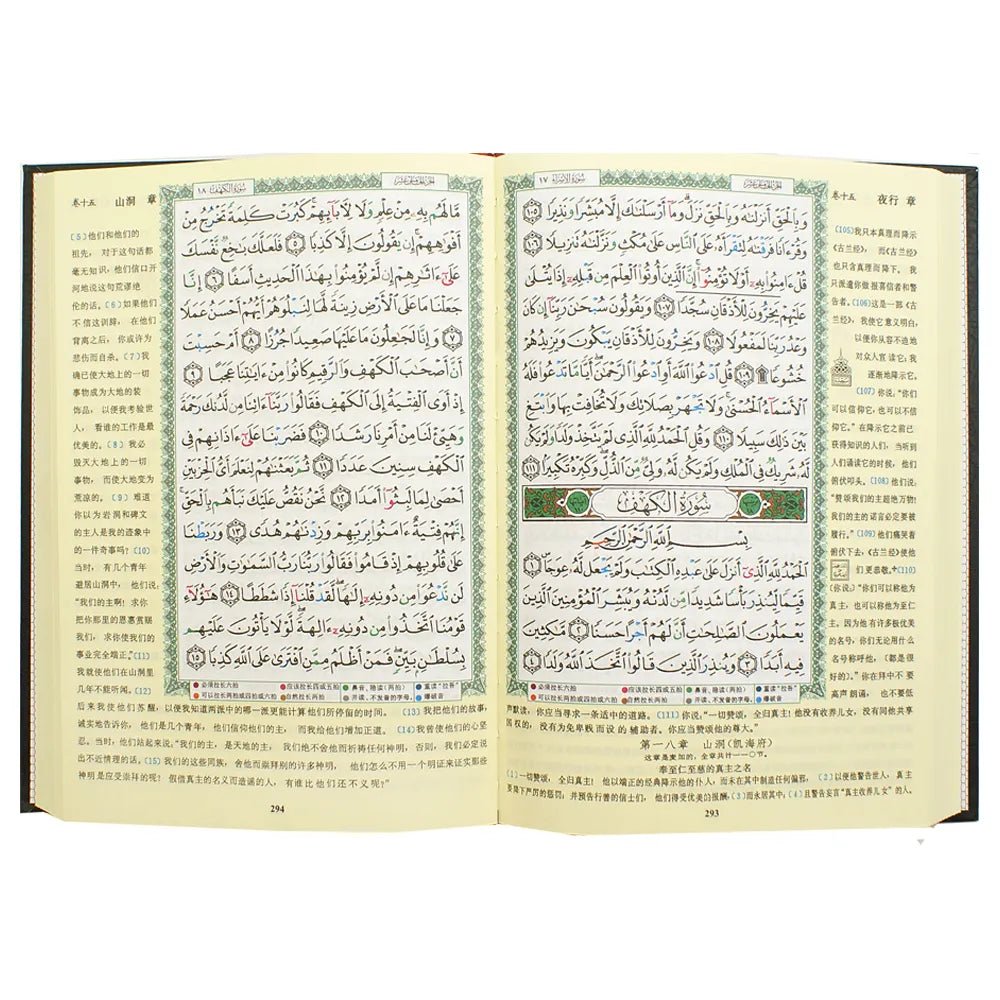 卷十五 夜行 章
الجزء الخامس عشر
سورة الإسراء ١٧
وَبِالْحَقِّ أَنزَلْنَٰهُ وَبِالْحَقِّ نَزَلَ وَمَآ أَرْسَلْنَٰكَ إِلَّا مُبَشِّرًا وَنَذِيرًا ١٠٥
وَقُرْءَانًا فَرَقْنَٰهُ لِتَقْرَأَهُۥ عَلَى النَّاسِ عَلَىٰ مُكْثٍ وَنَزَّلْنَٰهُ تَنزِيلًا ١٠٦
قُلْ ءَامِنُوا بِهِۦٓ أَوْ لَا تُؤْمِنُوٓا إِنَّ الَّذِينَ أُوتُوا الْعِلْمَ مِن قَبْلِهِۦٓ إِذَا يُتْلَىٰ
عَلَيْهِمْ يَخِرُّونَ لِلْأَذْقَانِ سُجَّدًا ١٠٧ وَيَقُولُونَ سُبْحَٰنَ رَبِّنَآ إِن كَانَ
وَعْدُ رَبِّنَا لَمَفْعُولًا ١٠٨ وَيَخِرُّونَ لِلْأَذْقَانِ يَبْكُونَ وَيَزِيدُهُمْ
خُشُوعًا ۩ ١٠٩ قُلِ ادْعُوا اللَّهَ أَوِ ادْعُوا الرَّحْمَٰنَ أَيًّا مَّا تَدْعُوا فَلَهُ
الْأَسْمَآءُ الْحُسْنَىٰ وَلَا تَجْهَرْ بِصَلَاتِكَ وَلَا تُخَافِتْ بِهَا وَابْتَغِ
بَيْنَ ذَٰلِكَ سَبِيلًا ١١٠ وَقُلِ الْحَمْدُ لِلَّهِ الَّذِي لَمْ يَتَّخِذْ وَلَدًا وَلَمْ يَكُن
لَّهُۥ شَرِيكٌ فِي الْمُلْكِ وَلَمْ يَكُن لَّهُۥ وَلِيٌّ مِّنَ الذُّلِّ وَكَبِّرْهُ تَكْبِيرًا ١١١
سُورَةُ الْكَهْفِ
بِسْمِ اللَّهِ الرَّحْمَٰنِ الرَّحِيمِ
الْحَمْدُ لِلَّهِ الَّذِيٓ أَنزَلَ عَلَىٰ عَبْدِهِ الْكِتَٰبَ وَلَمْ يَجْعَل لَّهُۥ عِوَجَا ١
قَيِّمًا لِّيُنذِرَ بَأْسًا شَدِيدًا مِّن لَّدُنْهُ وَيُبَشِّرَ الْمُؤْمِنِينَ الَّذِينَ
يَعْمَلُونَ الصَّٰلِحَٰتِ أَنَّ لَهُمْ أَجْرًا حَسَنًا ٢ مَّٰكِثِينَ
فِيهِ أَبَدًا ٣ وَيُنذِرَ الَّذِينَ قَالُوا اتَّخَذَ اللَّهُ وَلَدًا ٤
必须拉长六拍 应该拉长四或五拍 鼻音、隐读(两拍) 重读"拉吾"
可以拉长两拍或四拍或六拍 自然拉长两拍 并读、不发音的字母。 爆破音
(105)我只本真理而降示
《古兰经》, 而《古兰经》
也只含真理而降下。我
只派遣你做报喜信者和警
告者。(106)这是一部《古
兰经》,我使它意义明白,
以便你从容不迫地
对众人宣读它;我
逐渐地降示它。
(107)你说:"你们
可以信仰它,也可以不信
仰它。"在降示它之前已
获得知识的人们,当听到
人们诵读它的时候,他们
俯伏叩头。(108)他们说:
"赞颂我们的主超绝万物!
我们的主的诺言必定要被
履行。"(109)他们痛哭着
俯伏下去,《古兰经》使他
们更恭敬。(110)
你说:"你们可以称他为
真主,也可以称他为至仁
主。因为他有许多极优美
的名号,你们无论用什么
名号称呼他,(都是很
好的)。"你在拜中不要
高声朗诵,也不要低
声默读,你应当寻求一条适中的道路。(111)你说:"一切赞颂,全归真主!他没有收养儿女,没有同他共享
国权的,没有为免卑贱而设的辅助者。你应当赞颂他的尊大。"
第一八章 山洞(凯海府)
这章是麦加的,全章共计一一〇节。
奉至仁至慈的真主之名
(1)一切赞颂,全归真主!他以端正的经典降示他的仆人,而未在其中制造任何偏邪,(2)以便他警告世人,真主
要降下严厉的惩罚;并预告行善的信士们,他们得受优美的报酬,(3)而永居其中;(4)且警告妄言"真主收养儿女"的人。
293
卷十五 山洞 章
الجزء الخامس عشر
سورة الكهف ١٨
مَّا لَهُم بِهِۦ مِنْ عِلْمٍ وَلَا لِءَابَآئِهِمْ كَبُرَتْ كَلِمَةً تَخْرُجُ مِنْ
أَفْوَٰهِهِمْ إِن يَقُولُونَ إِلَّا كَذِبًا ٥ فَلَعَلَّكَ بَٰخِعٌ نَّفْسَكَ
عَلَىٰٓ ءَاثَٰرِهِمْ إِن لَّمْ يُؤْمِنُوا بِهَٰذَا الْحَدِيثِ أَسَفًا ٦ إِنَّا
جَعَلْنَا مَا عَلَى الْأَرْضِ زِينَةً لَّهَا لِنَبْلُوَهُمْ أَيُّهُمْ أَحْسَنُ عَمَلًا
٧ وَإِنَّا لَجَٰعِلُونَ مَا عَلَيْهَا صَعِيدًا جُرُزًا ٨ أَمْ حَسِبْتَ
أَنَّ أَصْحَٰبَ الْكَهْفِ وَالرَّقِيمِ كَانُوا مِنْ ءَايَٰتِنَا عَجَبًا ٩
إِذْ أَوَى الْفِتْيَةُ إِلَى الْكَهْفِ فَقَالُوا رَبَّنَآ ءَاتِنَا مِن لَّدُنكَ رَحْمَةً
وَهَيِّئْ لَنَا مِنْ أَمْرِنَا رَشَدًا ١٠ فَضَرَبْنَا عَلَىٰٓ ءَاذَانِهِمْ فِي
الْكَهْفِ سِنِينَ عَدَدًا ١١ ثُمَّ بَعَثْنَٰهُمْ لِنَعْلَمَ أَيُّ الْحِزْبَيْنِ
أَحْصَىٰ لِمَا لَبِثُوٓا أَمَدًا ١٢ نَّحْنُ نَقُصُّ عَلَيْكَ نَبَأَهُم بِالْحَقِّ
إِنَّهُمْ فِتْيَةٌ ءَامَنُوا بِرَبِّهِمْ وَزِدْنَٰهُمْ هُدًى ١٣ وَرَبَطْنَا
عَلَىٰ قُلُوبِهِمْ إِذْ قَامُوا فَقَالُوا رَبُّنَا رَبُّ السَّمَٰوَٰتِ وَالْأَرْضِ
لَن نَّدْعُوَا مِن دُونِهِۦٓ إِلَٰهًا لَّقَدْ قُلْنَآ إِذًا شَطَطًا ١٤ هَٰٓؤُلَآءِ
قَوْمُنَا اتَّخَذُوا مِن دُونِهِۦٓ ءَالِهَةً لَّوْلَا يَأْتُونَ عَلَيْهِم
بِسُلْطَٰنٍ بَيِّنٍ فَمَنْ أَظْلَمُ مِمَّنِ افْتَرَىٰ عَلَى اللَّهِ كَذِبًا ١٥
必须拉长六拍 应该拉长四或五拍 鼻音、隐读(两拍) 重读"拉吾"
可以拉长两拍或四拍或六拍 自然拉长两拍 并读、不发音的字母。 爆破音
(5)他们和他们的
祖先,对于这句话都
毫无知识,他们信口开
河地说这句荒谬绝
伦的话。(6)如果他们
不信这训辞,在他们
背离之后,你或许为
悲伤而自杀。(7)我
确已使大地上的一切
事物成为大地的装
饰品,以便我考验世
人,看谁的工作是最
优美的。(8)我必
毁灭大地上的一切
事物,而使大地变为
荒凉的。(9)难道
你以为岩洞和碑文
的主人是我的迹象中
的一件奇事吗?(10)
当时,有几个青年
避居山洞中,他们说:
"我们的主啊!求你
把你那里的恩惠赏赐
我们,求你使我们的
事业完全端正。"(11)
我就使他们在山洞里
几年不能听闻。(12)
后来我使他们苏醒,以便我知道两派中的哪一派更能计算他们所停留的时间。(13)我把他们的故事,
诚实地告诉你,他们是几个青年,他们信仰他们的主,而我给他们增加正道。(14)我曾使他们的心坚
忍。当时,他们站起来说:"我们的主,是天地的主,我们绝不舍他而祈祷任何神明,否则,我们必定说
出不近情理的话。(15)我们的这些同族,舍他而崇拜别的许多神明,他们怎么不用一个明证来证实那些
神明是应受崇拜的呢!假借真主的名义而造谣的人,有谁比他们还不义呢?"
294